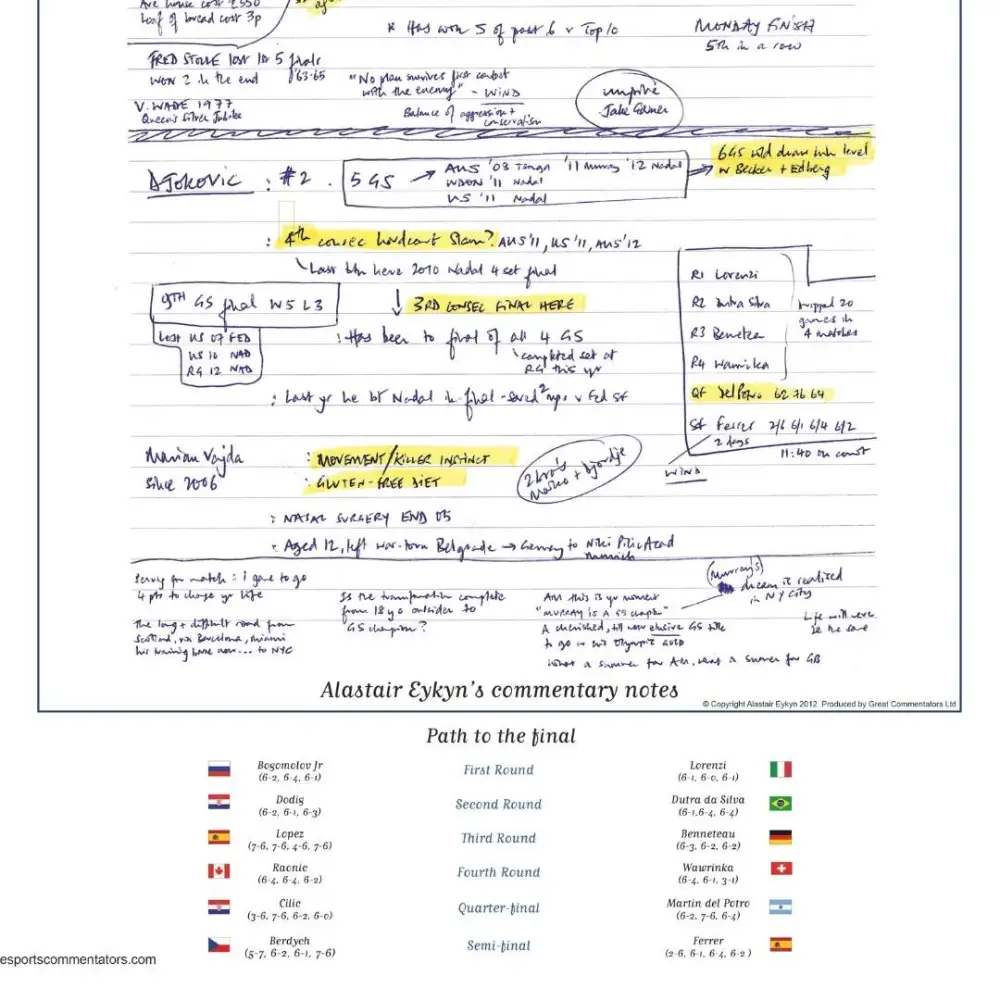 Loaf of bread cost 3p
* Has won 5 of past 6 v Top 10
MONDAY FINISH
5th in a row
FRED STOLLE lost 1st 5 finals
WON 2 in the end '63-65
"No plan survives first contact
with the enemy" - WIND
umpire
Jake Garner
V. WADE 1977
Queen's Silver Jubilee
Balance of aggression +
conservatism
DJOKOVIC : #2.
5 GS → AUS '08 Tsonga '11 Murray '12 Nadal
WDON '11 Nadal
US '11 Nadal
6GS wld draw him level
w Becker + Edberg
: 4th consec hardcourt Slam? AUS'11, US'11, AUS'12
Last btn here 2010 Nadal 4 set final
9TH GS final W5 L3
↓ 3RD CONSEC FINAL HERE
LOST US 07 FED
US 10 NAD
RG 12 NAD
: Has been to final of all 4 GS
completed set at
RG this yr
: Last yr he bt Nadal in final - saved 2 mps v Fed SF
R1 Lorenzi
R2 Dutra Silva
R3 Benneteau
R4 Wawrinka
dropped 20
games in
4 matches
QF Del Potro 62 76 64
SF Ferrer 2/6 6/1 6/4 6/2
2 days
11:40 on court
WIND
Marian Vajda
since 2006
: MOVEMENT/KILLER INSTINCT
: GLUTEN-FREE DIET
2 bros
Marko + Djordje
: NASAL SURGERY END 05
: Aged 12, left war-torn Belgrade → Germany to Niki Pilic Acad
Munich
Serving for match : 1 game to go
4 pts to change yr life
The long + difficult road from
Scotland, via Barcelona, Miami
his training base now... to NYC
Is the transformation complete
from 18 y o outsider to
GS champion?
AM this is yr moment
"MURRAY IS A GS champ"
A cherished, till now elusive GS title
to go w his Olympic GOLD
What a summer for AM, what a summer for GB
(Murray's)
dream is realised
in NY City
Life will never
be the same
Alastair Eykyn's commentary notes
© Copyright Alastair Eykyn 2012 Produced by Great Commentators Ltd
Path to the final
Bogomolov Jr
(6-2, 6-4, 6-1)
First Round
Lorenzi
(6-1, 6-0, 6-1)
Dodig
(6-2, 6-1, 6-3)
Second Round
Dutra da Silva
(6-1,6-4, 6-4)
Lopez
(7-6, 7-6, 4-6, 7-6)
Third Round
Benneteau
(6-3, 6-2, 6-2)
Raonic
(6-4, 6-4, 6-2)
Fourth Round
Wawrinka
(6-4, 6-1, 3-1)
Cilic
(3-6, 7-6, 6-2, 6-0)
Quarter-final
Martin del Potro
(6-2, 7-6, 6-4)
Berdych
(5-7, 6-2, 6-1, 7-6)
Semi-final
Ferrer
(2-6, 6-1, 6-4, 6-2 )
esportscommentators.com